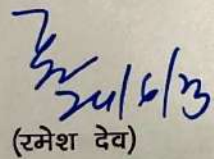 24/6/23
(रमेश देव)